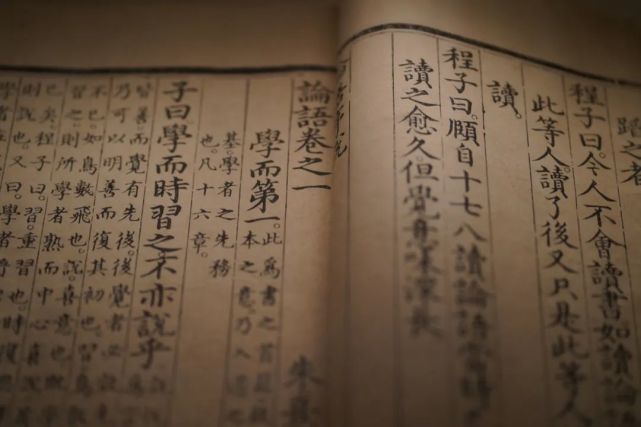 蹈之者
程子曰。今人不會讀書如讀論
此等人。讀了後又只是此等人
讀。
程子曰。頤自十七八讀論語
讀之愈久但覺意味深長
論語卷之一
朱
學而第一。此爲書之首
本之意。乃入
基。學者之先務
也。凡十六章。
子曰學而時習之不亦說乎
皆善。而覺有先後。後覺者必
乃可以明善而復其初也。習
不已。如鳥數飛也。說。喜意也
習之。則所學者熟而中心喜說
已矣程子曰。習。重習也。時復
則說也。又曰。學者將